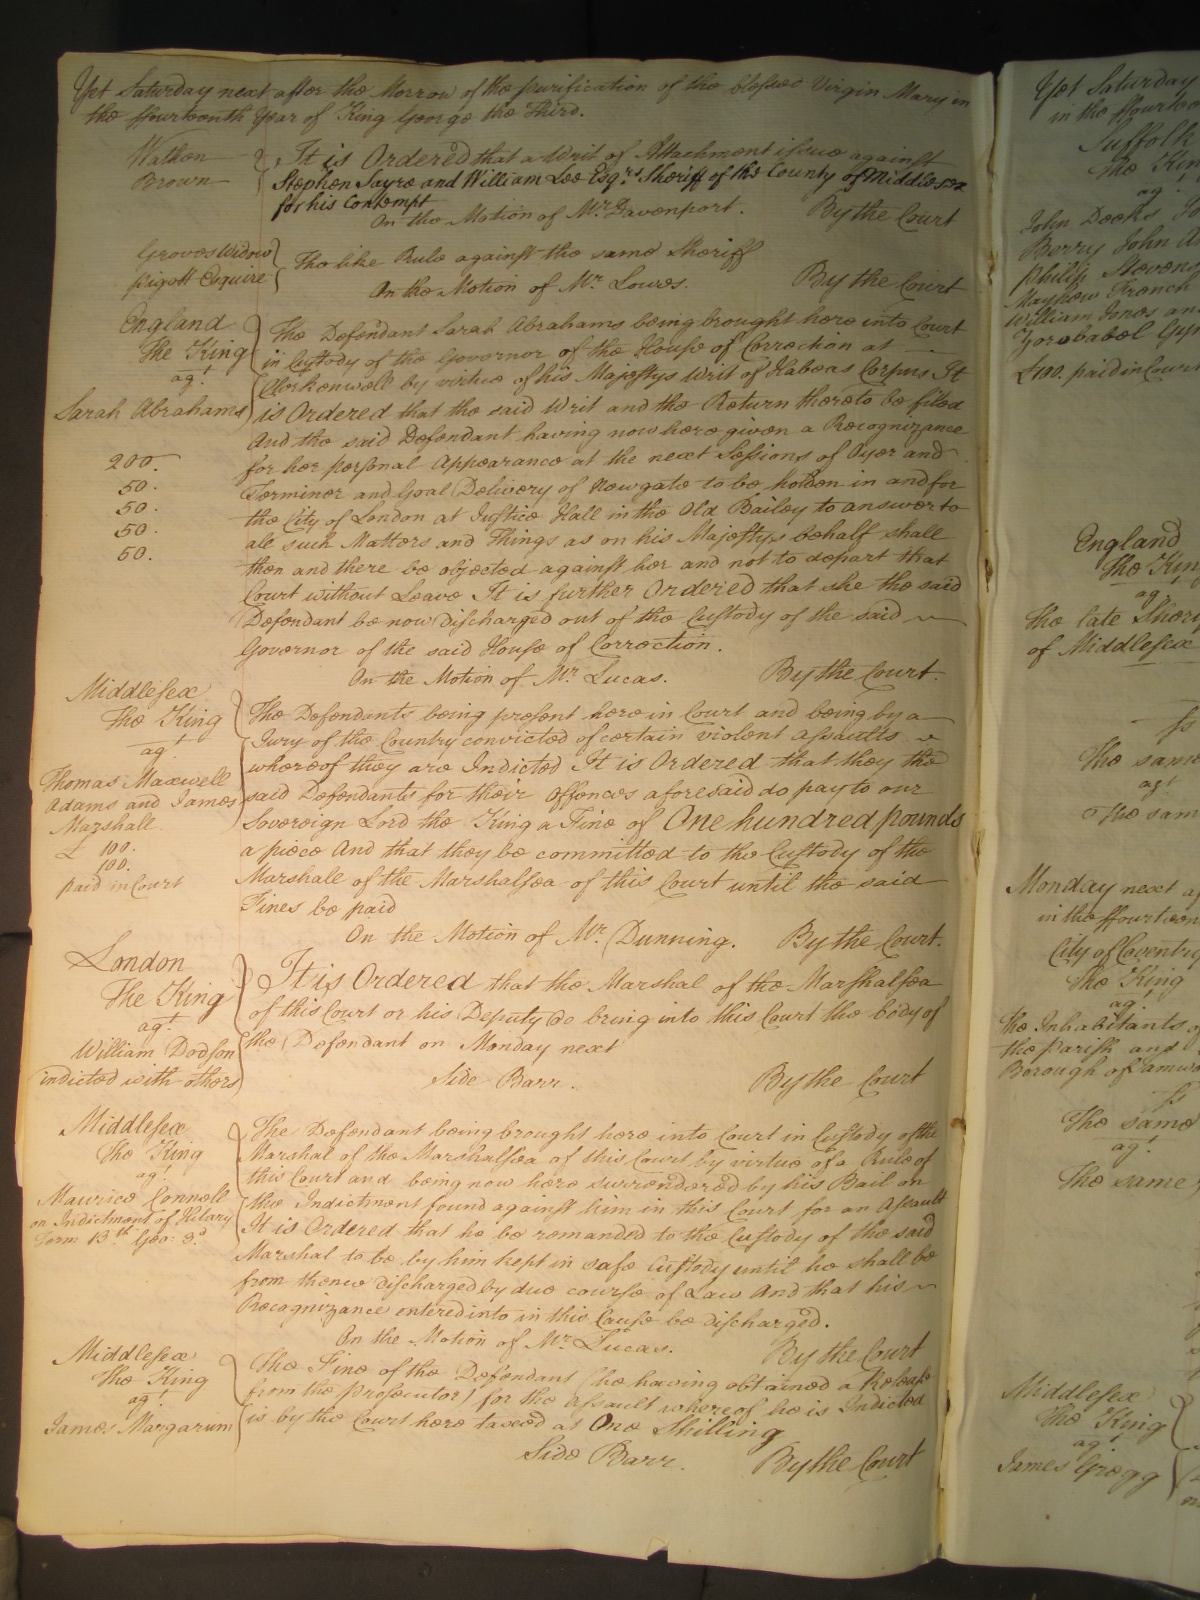 Yet Saturday next after the Morrow of the purification of the blessed Virgin Mary in
the ffourteenth Year of King George the Third.
Wathen
Brown
It is Ordered that a Writ of Attachment issue against
Stephen Sayre and William Lee Esqrs. Sheriff of the County of Middlesex
for his Contempt
On the Motion of Mr. Davenport. By the Court
Groves Widow
Pigott Esquire
The like Rule against the same Sheriff
On the Motion of Mr. Lowes. By the Court
England
The King
agt.
Sarah Abrahams
200.
50.
50.
50.
50.
The Defendant Sarah Abrahams being brought here into Court
in Custody of the Governor of the House of Correction at
Clerkenwell by virtue of his Majestys Writ of Habeas Corpus It
is Ordered that the said Writ and the Return thereto be filed
And the said Defendant having now here given a Recognizance
for her personal Appearance at the next Sessions of Oyer and
Terminer and Goal Delivery of Newgate to be holden in and for
the City of London at Justice Hall in the Old Bailey to answer to
all such Matters and Things as on his Majestys behalf shall
then and there be objected against her and not to depart that
Court without Leave It is further Ordered that she the said
Defendant be now discharged out of the Custody of the said
Governor of the said House of Correction.
On the Motion of Mr. Lucas. By the Court.
Middlesex
The King
agt.
Thomas Maxwell
Adams and James
Marshall
£ 100.
100.
paid in Court
The Defendants being present here in Court and being by a
Jury of the Country convicted of certain violent assaults
whereof they are Indicted It is Ordered that they the
said Defendants for their offences aforesaid do pay to our
Sovereign Lord the King a Fine of One hundred pounds
a piece And that they be committed to the Custody of the
Marshall of the Marshalsea of this Court until the said
Fines be paid
On the Motion of Mr. Dunning. By the Court.
London
The King
agt.
William Dodson
indicted with others
It is Ordered that the Marshal of the Marshalsea
of this Court or his Deputy do bring into this Court the body of
the Defendant on Monday next
Side Barr. By the Court
Middlesex
The King
agt.
Maurice Connell
on Indictment of Hilary
Term 13th. Geo: 3d.
The Defendant being brought here into Court in Custody of the
Marshal of the Marshalsea of this Court by virtue of a Rule of
this Court and being now here surrendered by his Bail on
the Indictment found against him in this Court for an Assault
It is Ordered that he be remanded to the Custody of the said
Marshal to be by him kept in safe Custody until he shall be
from thence discharged by due course of Law And that his
Recognizance entered into in this Cause be discharged.
On the Motion of Mr. Lucas. By the Court
Middlesex
The King
agt.
James Margarum
The Fine of the Defendant (he having obtained a Release
from the prosecutor) for the assault whereof he is Indicted
is by the Court here taxed at One Shilling
Side Barr. By the Court
Yet Saturday
in the ffourteen
Suffolk
The Kin
agt.
John Deeks
Berry John
Philip Stevens
Mayhew French
William Jones an
Zorobabel
£100. paid in Court
England
The Kin
agt.
The late Sheri
of Middlesex
The same
agt
The sam
Monday next
in the ffourteen
City of Coventry
The King
agt.
The Inhabitants of
the Parish and
Borough of Tamwo
The same
agt.
The same
Middlesex
The King
agt.
James Gregg